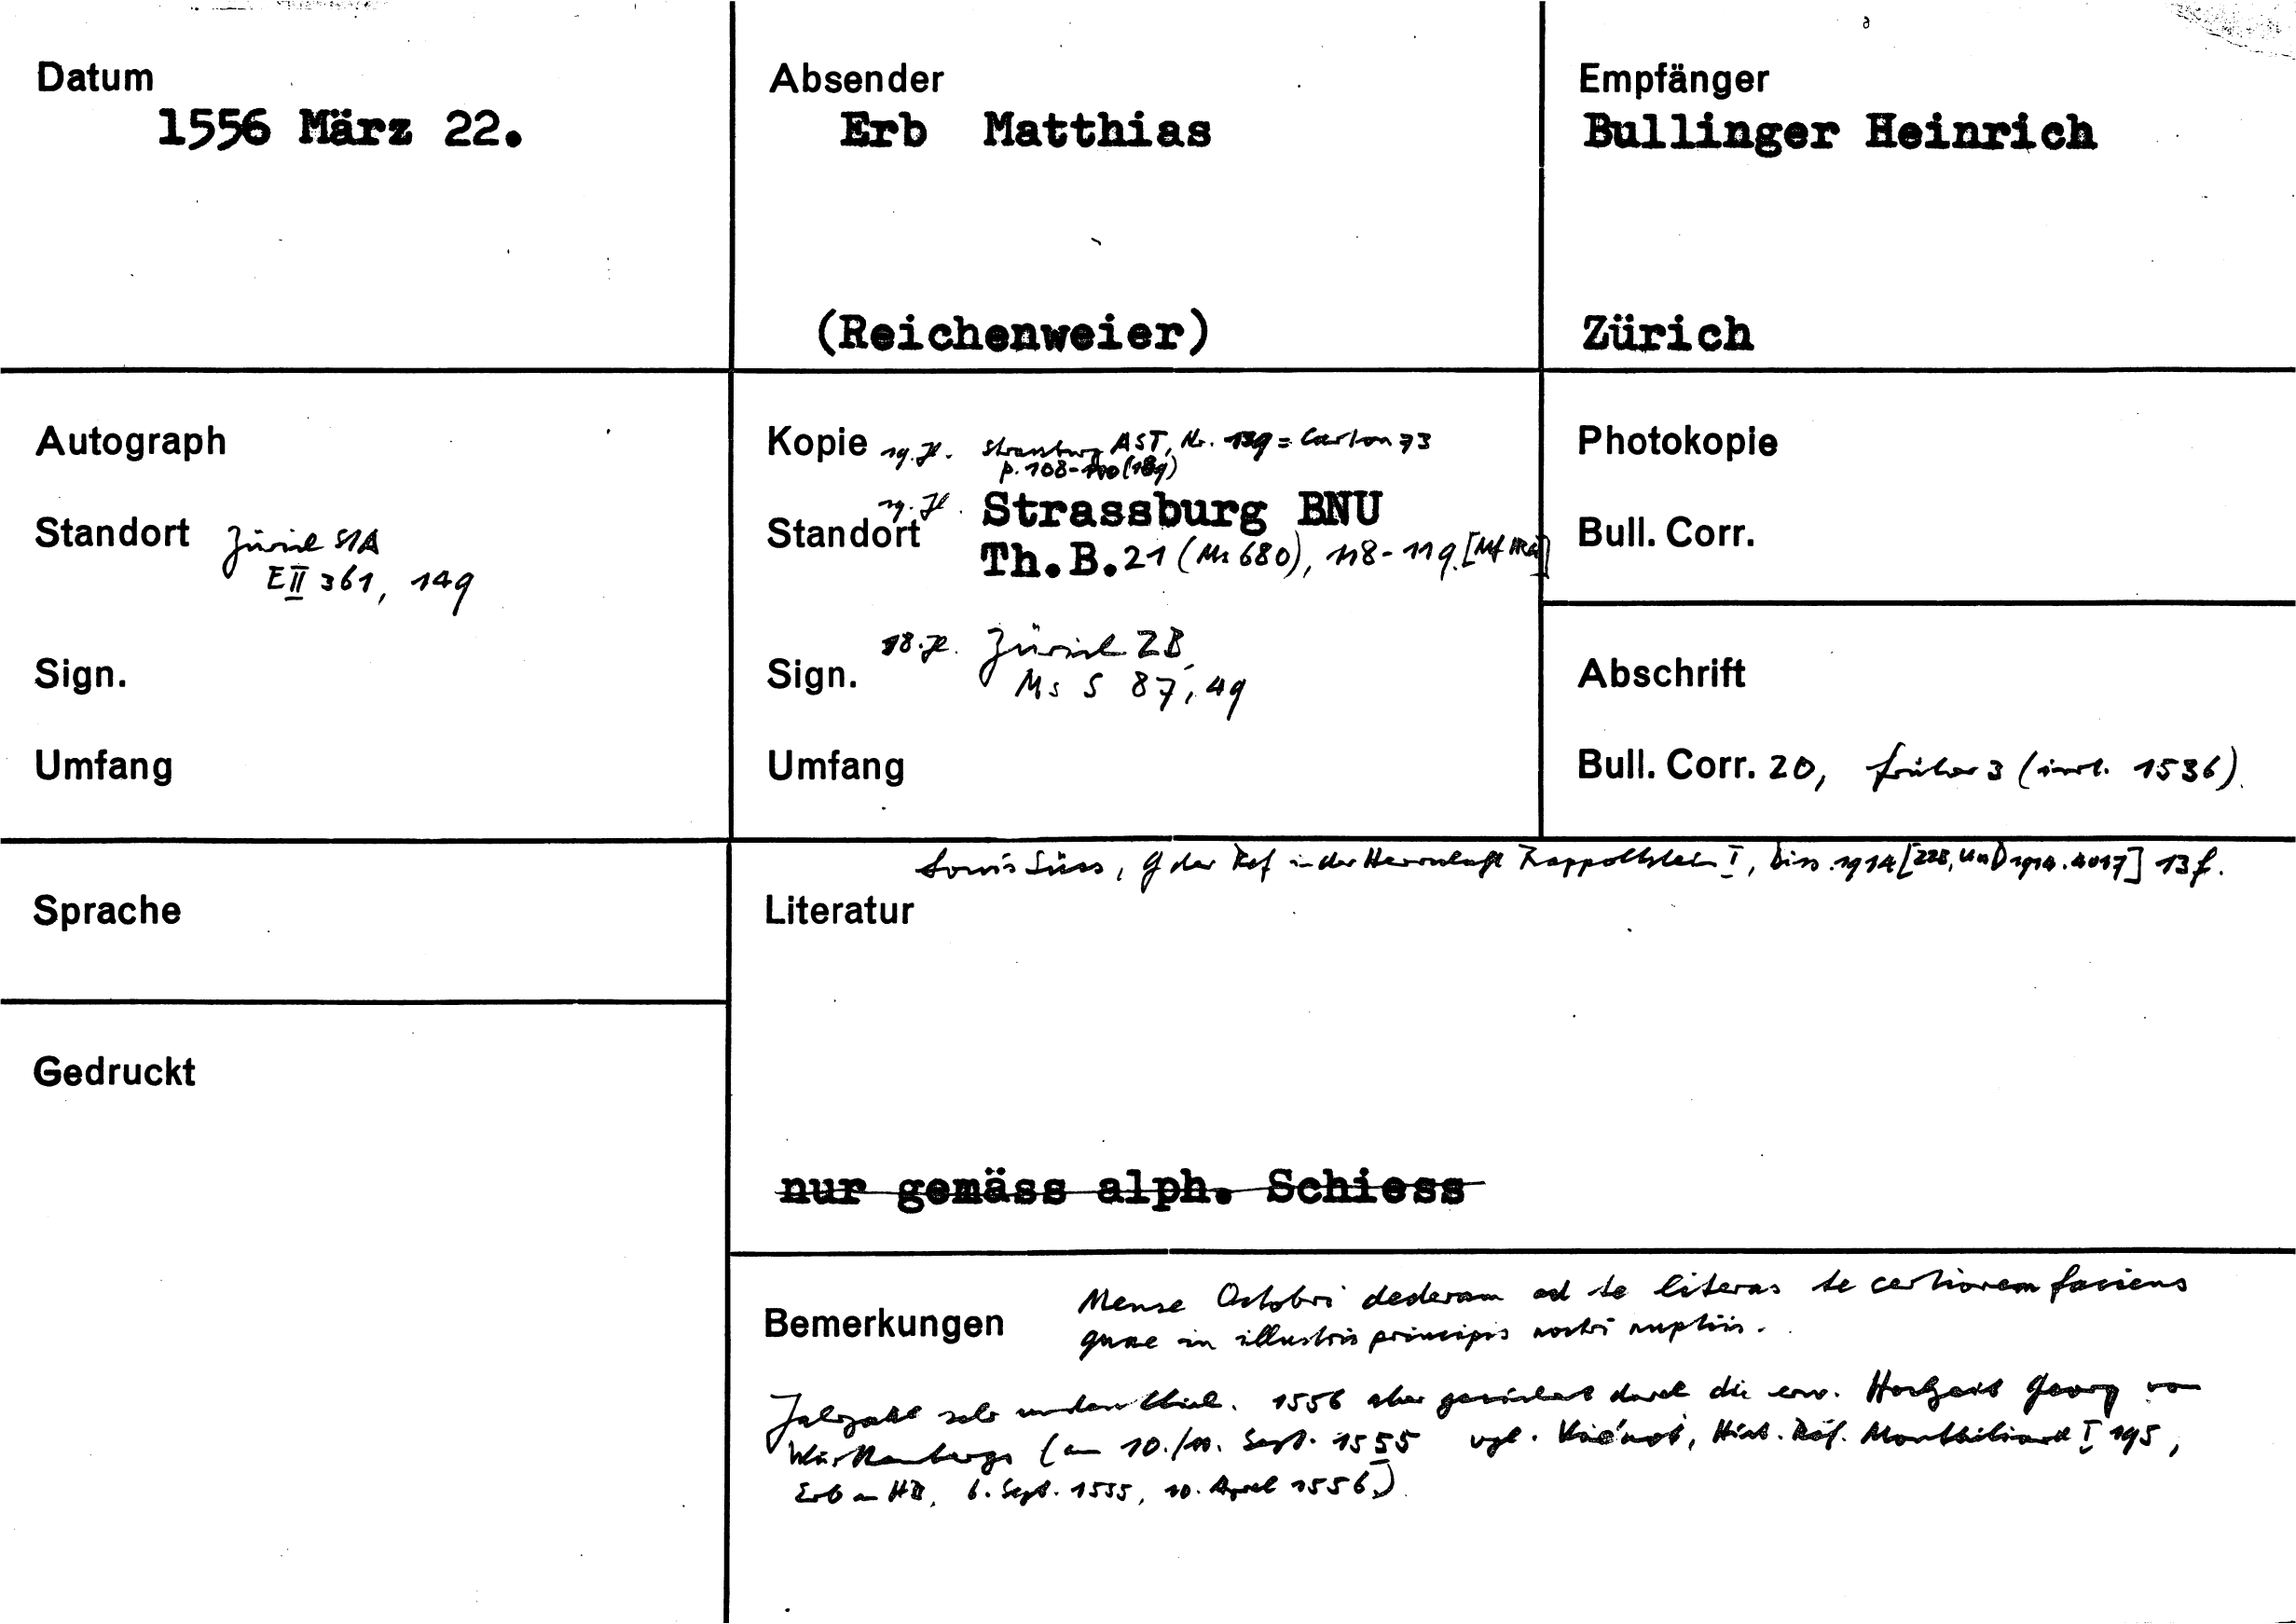 Datum
1556 März 22.
Absender
Erb Matthias
(Reichenweier)
Empfänger
Bullinger Heinrich
Zürich
Autograph
Standort Zürich StA
E II 361, 149
Sign.
Umfang
Kopie 19. Jh. Strassburg AST, Nr. 139 = Carton 73
p. 108-110 (189)
19. Jh. Strassburg BNU
Standort
Th. B. 21 (Ms 680), 118-119.
18. Jh. Zürich ZB,
Sign. Ms S 87, 49
Umfang
Photokopie
Bull. Corr.
Abschrift
Bull. Corr. 20, früher 3 (irrt. 1536).
Sprache
Louis Süss, G der Ref in der Herrschaft Rappoltstein I, Diss. 1914 [228, UnD 1914.4017] 13f.
Literatur
Gedruckt
nur gemäss alph. Schiess
Bemerkungen
Mense Octobri dederam ad te literas te certiorem faciens
quae in illustris principis nostri nuptiis.
Jahrzahl sehr undeutlich. 1556 aber gesichert durch die erw. Hochzeit Georg von
Württembergs (am 10./11. Sept. 1555 vgl. Viénot, Hist. Réf. Montbéliard I 195,
Erb an HB, 6. Sept. 1555, 10. April 1556).